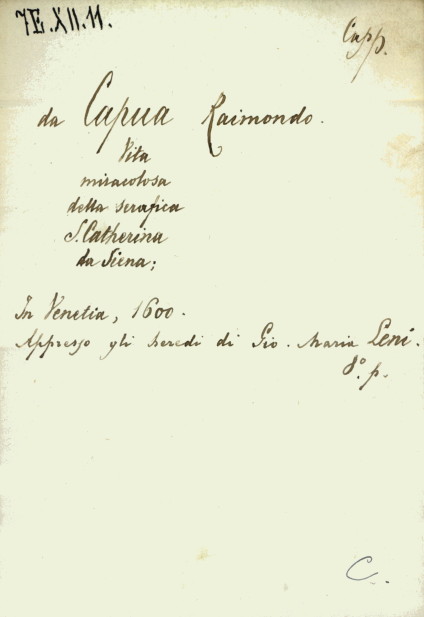 7E.XII.11.
Capp.
da Capua Raimondo.
Vita
miracolosa
della serafica
S. Catherina
da Siena;
In Venetia, 1600.
Appresso gli heredi di Gio. Maria Leni.
8.° p.
C.